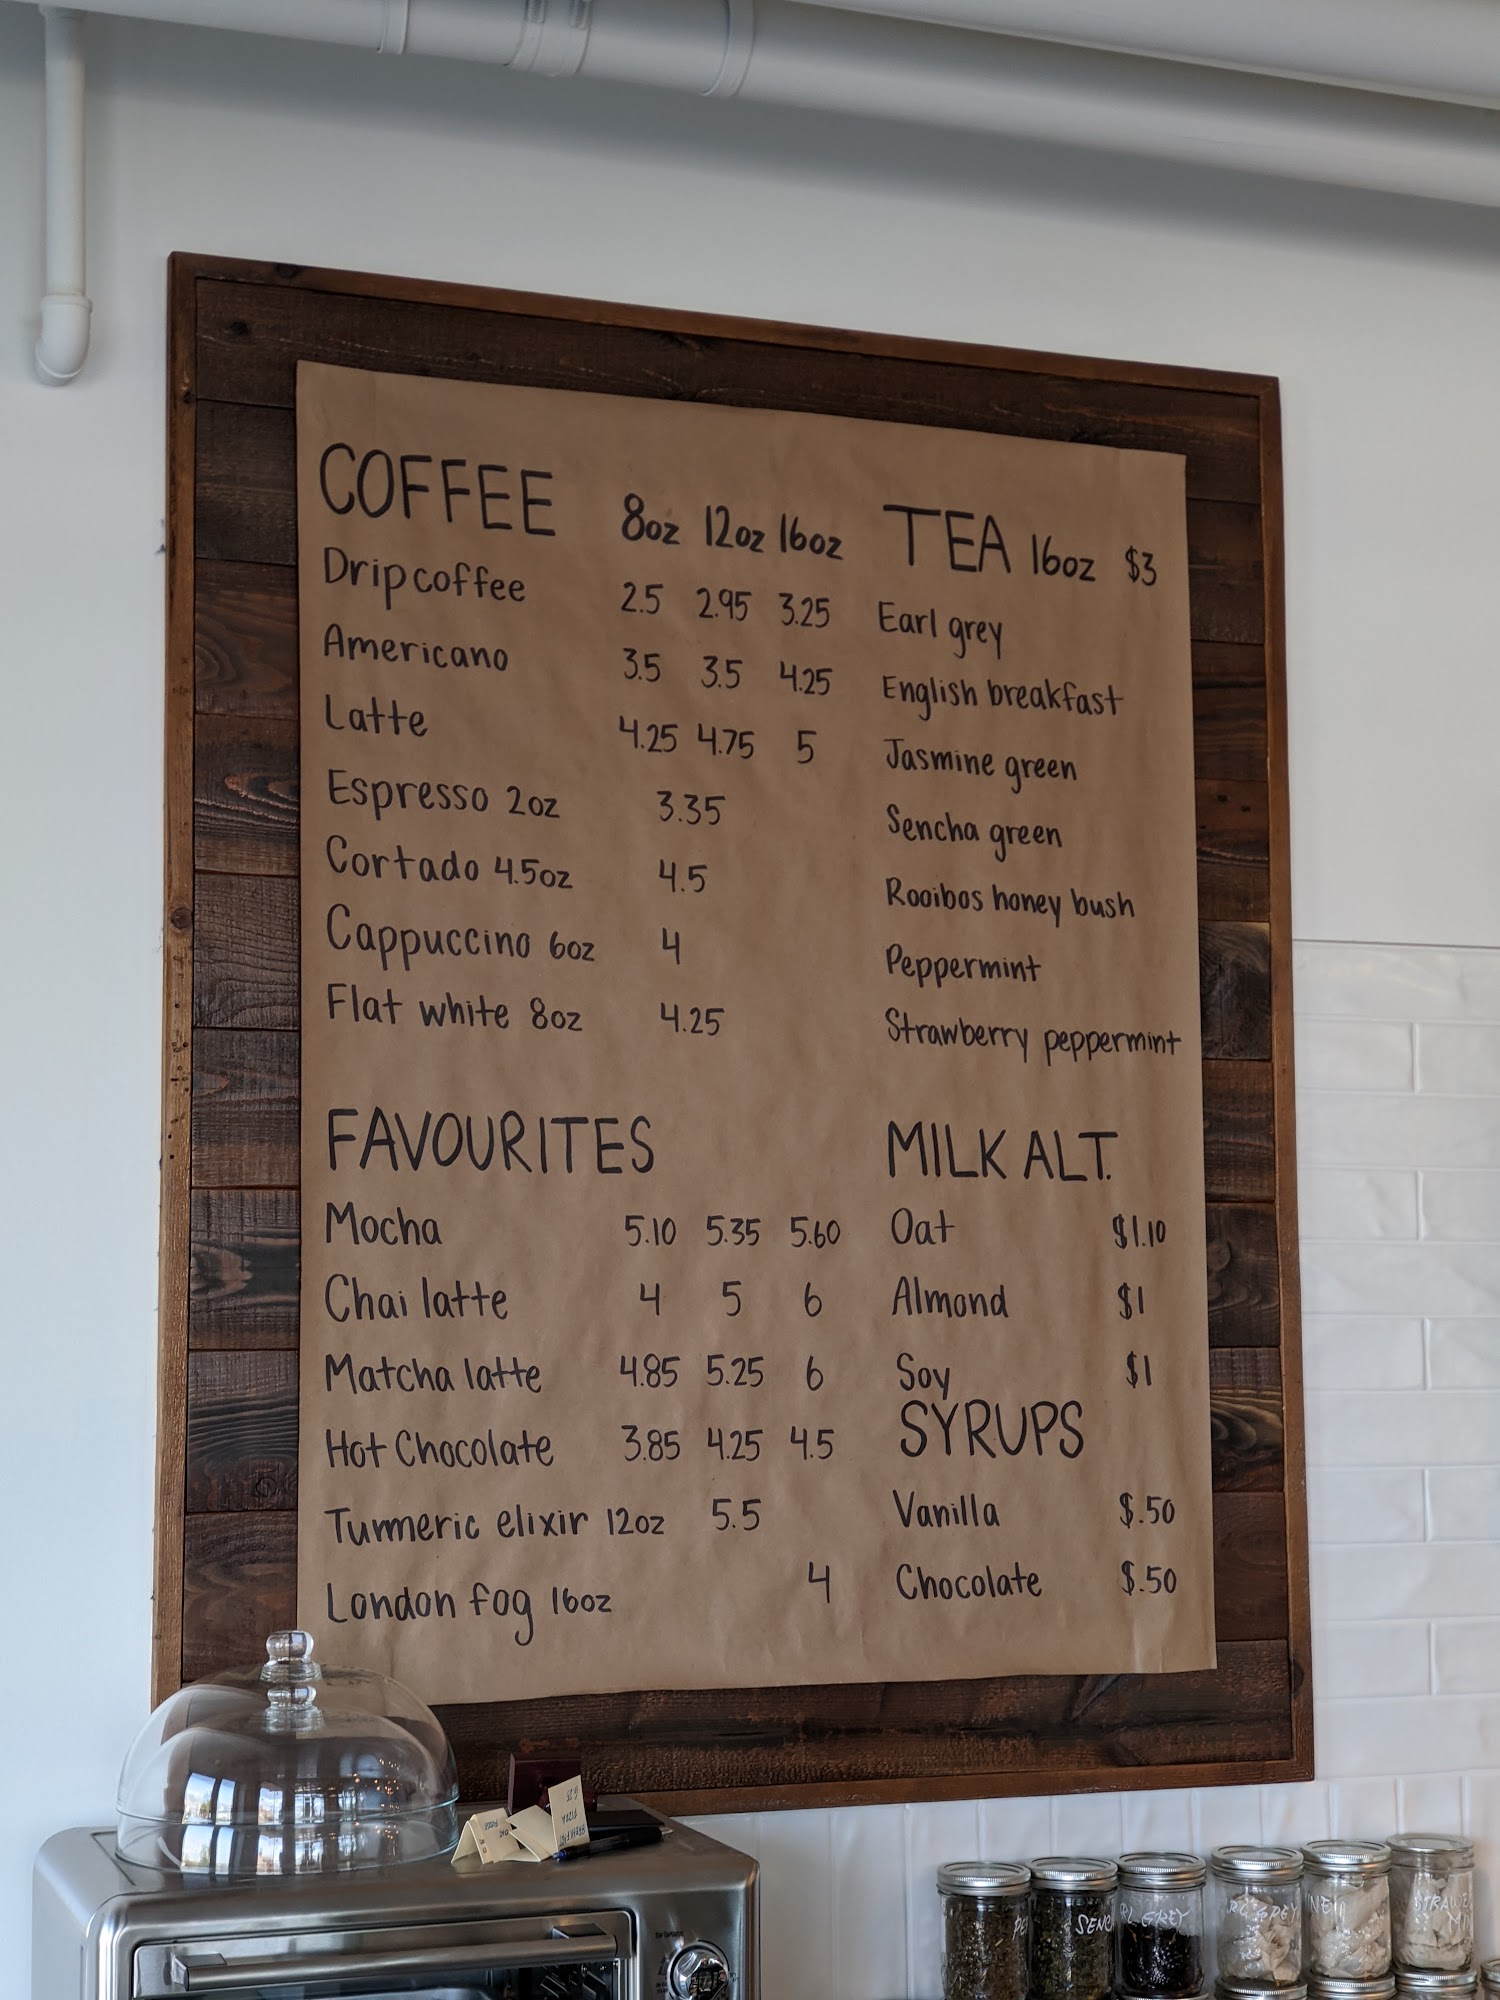 COFFEE 8oz 12oz 16oz
Drip coffee 2.5 2.95 3.25
Americano 3.5 3.5 4.25
Latte 4.25 4.75 5
Espresso 2oz 3.35
Cortado 4.5oz 4.5
Cappuccino 6oz 4
Flat white 8oz 4.25
FAVOURITES
Mocha 5.10 5.35 5.60
Chai latte 4 5 6
Matcha latte 4.85 5.25 6
Hot Chocolate 3.85 4.25 4.5
Turmeric elixir 12oz 5.5
London fog 16oz 4
TEA 16oz $3
Earl grey
English breakfast
Jasmine green
Sencha green
Rooibos honey bush
Peppermint
Strawberry peppermint
MILK ALT.
Oat $1.10
Almond $1
Soy $1
SYRUPS
Vanilla $.50
Chocolate $.50